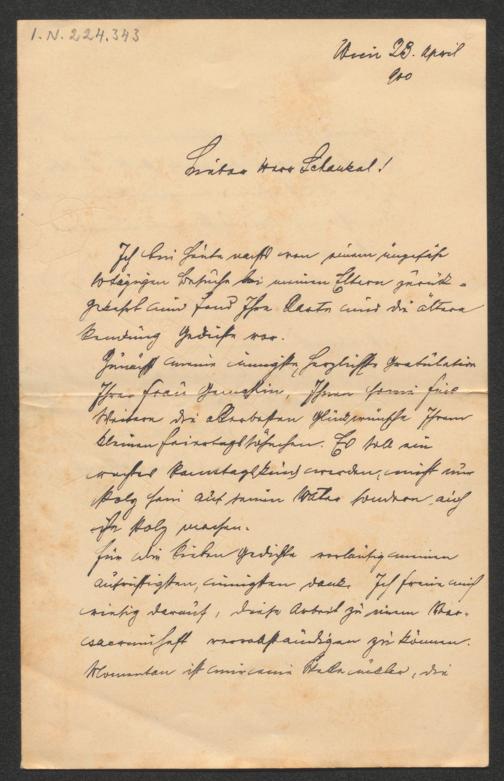 I.N. 224.343
Wien 23. April
900
Lieber Herr Schaukal!
Ich bin heute nachts von einem ungefähr
tägigen Besuche bei meinen Eltern zurück-
gekehrt und fand Ihre Karte und die ältere
Sendung Gedichte vor.
Zunächst meine innigste, herzlichste Gratulation
Ihrer Frau Gemahlin, Ihnen sowie
Weitern die allerbesten Glückwünsche Ihrem
kleinen Feiertagssöhnchen. Es soll ein
rechtes Sonntagskind werden, nicht nur
stolz sein auf seinen Vater sondern auch
Sie stolz machen.
Für die lieben Gedichte vorläufig meinen
aufrichtigsten, innigsten Dank. Ich freue mich
riesig darauf, diese Arbeit zu einem Ver-
sacrumheft vervollständigen zu können.
Momentan ist mir eine, die